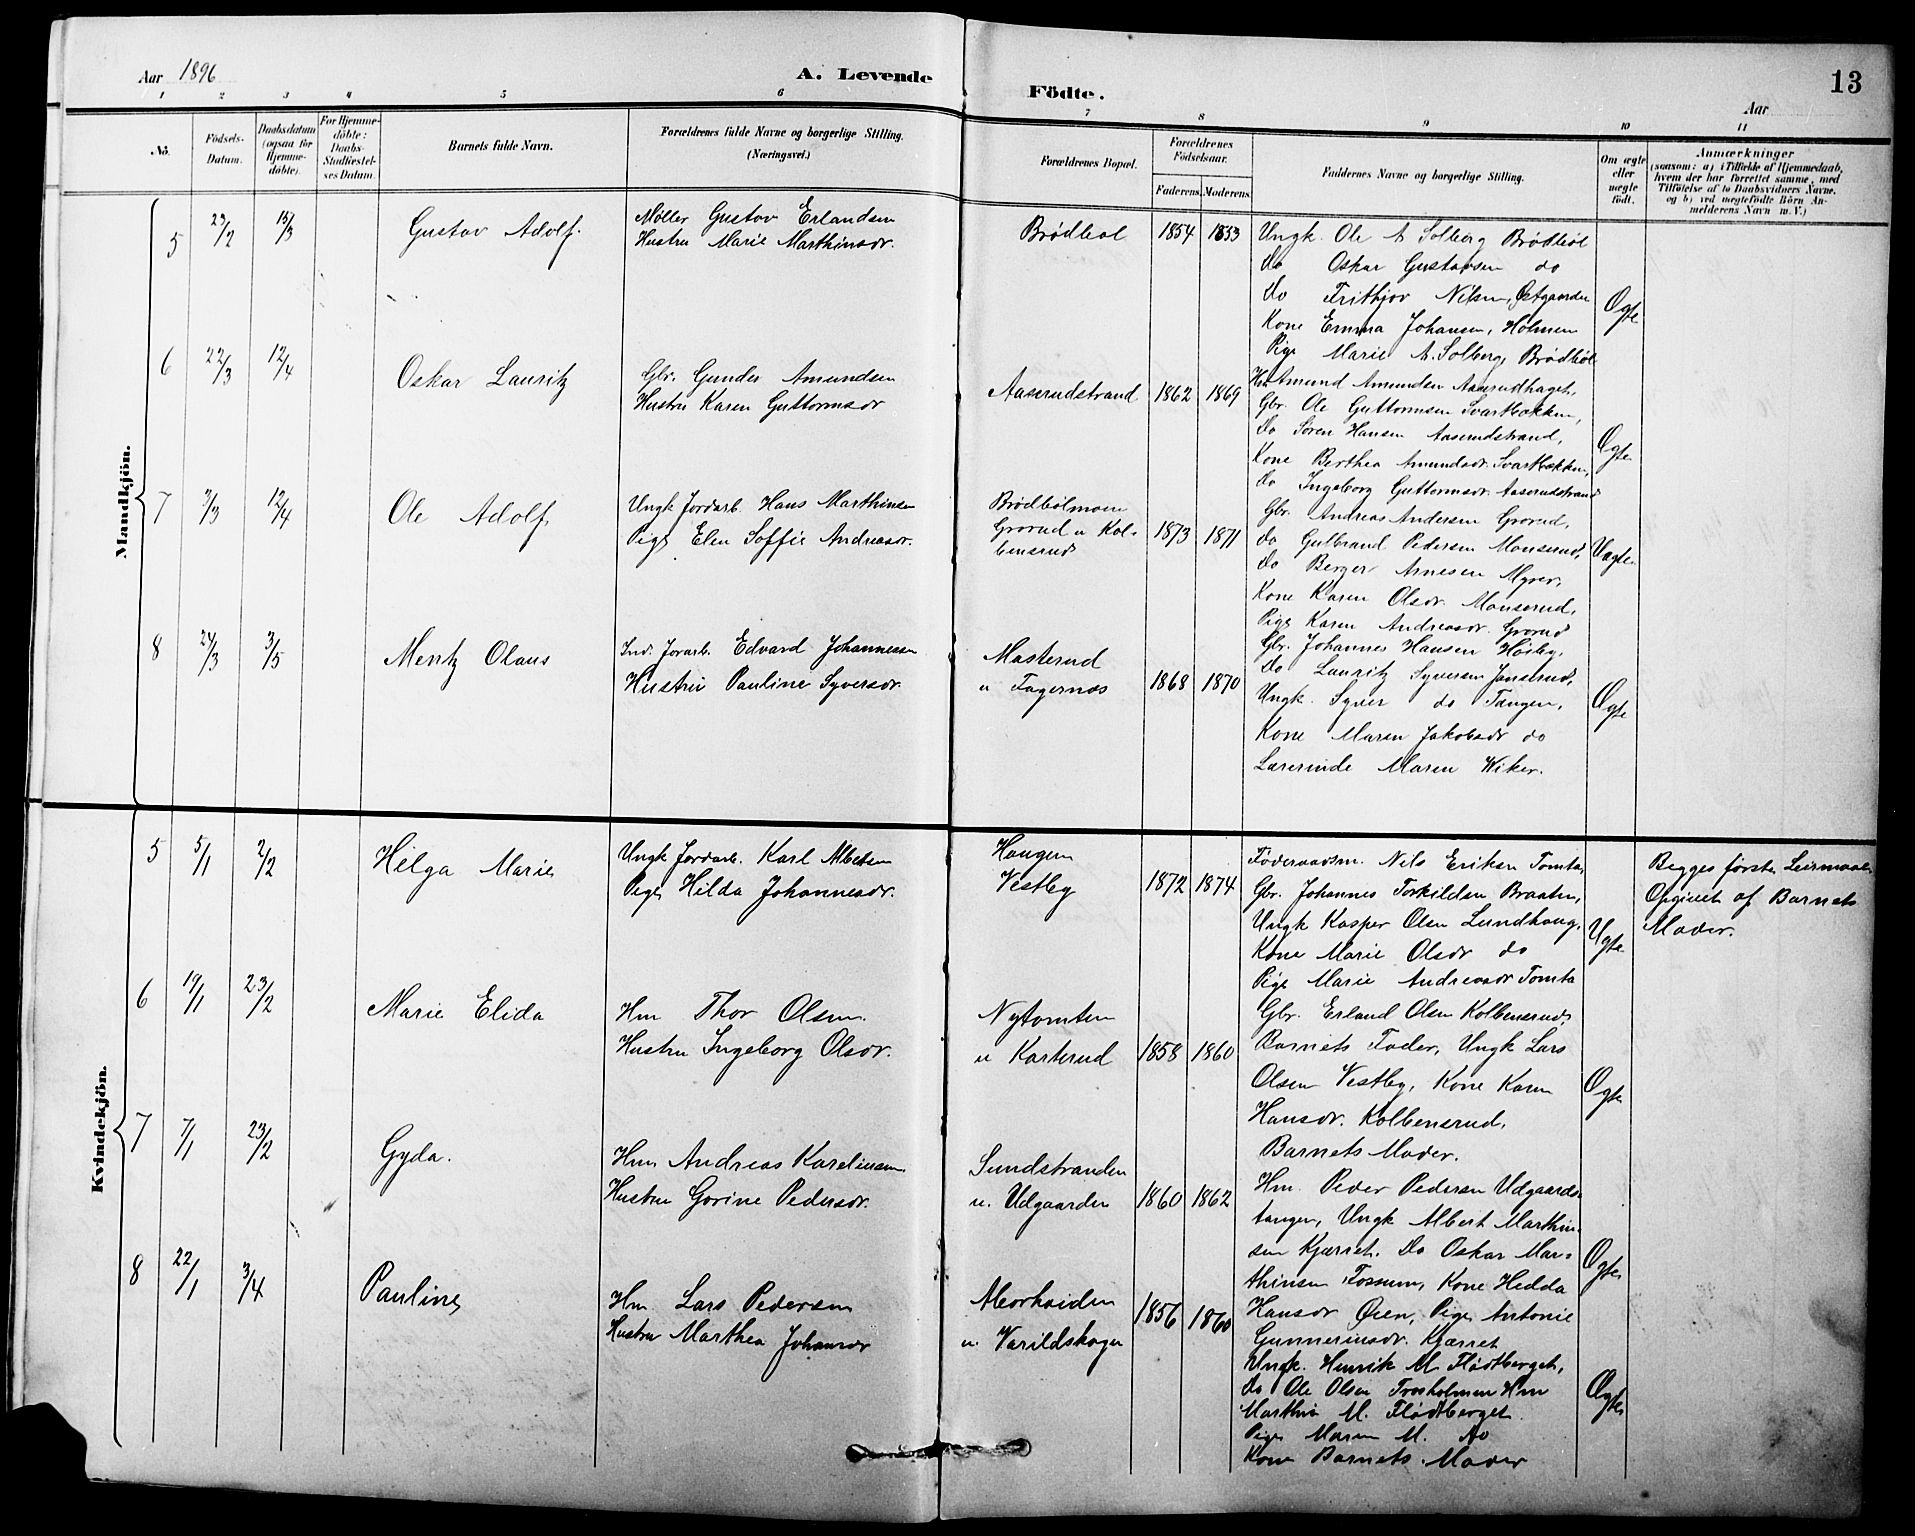 Aar 1896
A. Levende
Födte.
Aar
13
1 2 3 4 5 6 7 8 9 10 11
No.
Födsels-Datum.
Daabsdatum (ogsaa for Hjemmedöbte).
For Hjemmedöbte: Daabs-Stadfæstelses Datum.
Barnets fulde Navn.
Forældrenes fulde Navne og borgerlige Stilling.
(Næringsvei.)
Forældrenes Bopæl.
Forældrenes Födselsaar.
Faderens.
Moderens.
Faddernes Navne og borgerlige Stilling.
Om ægte eller uægte födt.
Anmærkninger
(saasom: a) i Tilfælde af Hjemmedaab,
hvem der har forrettet samme, med
Tilföielse af to Daabsvidners Navne,
og b) ved uægtefödte Börn An-
melderens Navn m. V.)
Mandkjön.
5 23/2 15/3 Gustav Adolf.
Møller Gustav Erlandsen
Hustru Marie Marthinsdr.
Brödböl 1854 1853
Ungk. Ole A. Solberg Brödböl
Do Oskar Gustavsen do
Do Frithjov Nilsen, Østgaarden
Kone Emma Johansen, Holmen
Pige Marie A. Solberg, Brödböl
Ægte
6 22/3 12/4 Oskar Lauritz
Gbr. Gunder Amundsen
Hustru Karen Guttormsdr
Aaserudstrand 1862 1869
Hm Amund Amundsen Aaserudhaget,
Gbr. Ole Guttormsen Svartbækken,
Do Søren Hansen Aaserudstrand,
Kone Berthea Amundsdr. Svartbækken,
Do Ingeborg Guttormsdr. Aaserudstrand
Ægte
7 3/3 12/4 Ole Adolf
Ungk Jordarb. Hans Marthinsen
Pige Elen Soffie Andreasdr.
Brödbölmoen
Grorud u Kol-
bensrud
1873 1871
Gbr. Andreas Andersen Grorud,
do Gulbrand Pedersen Monserud,
Do Berger Arnesen Myrer,
Kone Karen Olsdr. Monserud,
Pige Karen Andreasdr. Grorud
Uægte
8 24/3 3/5 Mentz Olaus
Ind. Jorarb. Edvard Johannesen
Hustru Pauline Syversdr.
Masterud
u Fagernæs
1868 1870
Gbr. Johannes Hansen Høiby,
Do Lauritz Syversen Jonserud,
Ungk. Syver do Tangen,
Kone Maren Jakobsdr do
Lærerinde Maren Wiker.
Ægte
Kvindekjön.
5 5/1 2/2 Hilga Marie
Ungk Jordarb. Karl Albertsen
Pige Hilda Johannesdr.
Haugen
Vestby
1872 1874
Föderaadsm. Nils Eriksen Tomta,
Gbr. Johannes Torkildsen Braaten,
Ungk Kasper Olsen Lundhaug,
Kone Marie Olsdr do
Pige Marie Andreasdr Tomta
Uægte
Begges første Leiermaal.
Opgivet af Barnets
Moder.
6 19/1 23/2 Marie Elida
Hm Thor Olsen.
Hustru Ingeborg Olsdr.
Nytomten
u Karterud
1858 1860
Gbr. Erland Olsen Kolbensrud,
Barnets Fader, Ungk Lars
Olsen Vestby, Kone Karen
Hansdr. Kolbensrud,
Barnets Moder.
Ægte
7 7/1 23/2 Gyda.
Hm. Andreas Karelinsen
Hustru Gorine Pedersdr.
Sundstranden
u. Udgaarden
1860 1862
Hm. Peder Pedersen Udgaards-
tangen, Ungk Albert Marthin-
sen Kjærret. Do Oskar Mar-
thinsen Fossum, Kone Hedda
Hansdr Øien, Pige Antonie
Gunneriusdr. Kjærret
Ægte
8 22/1 3/4 Pauline
Hm Lars Pedersen
Hustru Marthea Johansdr
Morheiden
u. Varildskogen
1856 1860
Ungk. Henrik M. Flödtberget,
Do Ole Olsen Trosholmen Hm
Marthin M. Flödtberget
Pige Maren M. do
Kone Barnets Moder
Ægte